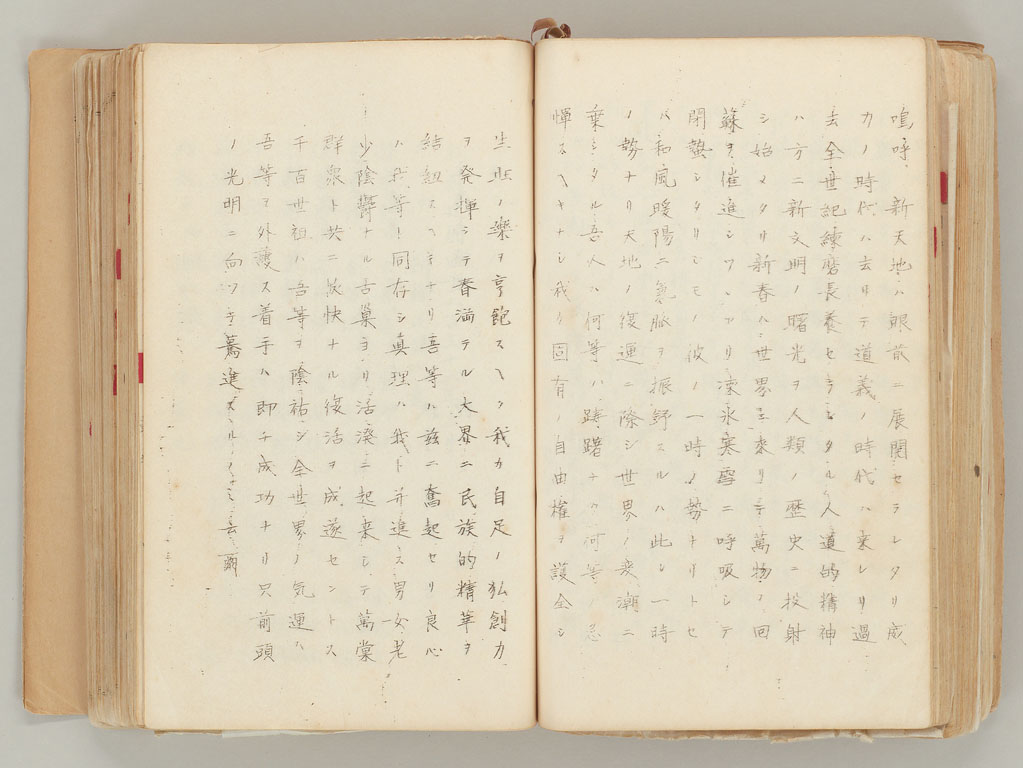 嗚呼新天地ハ眼前ニ展開セラレタリ威
力ノ時代ハ去リテ道義ノ時代ハ来レリ過
去全世記練磨長養セラレタル人道的精神
ハ方ニ新文明ノ曙光ヲ人類ノ歴史ニ投射
シ始メタリ新春ハ世界ニ来リテ萬物ノ回
蘇ヲ催進シツヽアリ凍氷寒雪ニ呼吸シテ
閉蟄シタリシモノ彼ノ一時ノ勢ナリトセ
ハ和風暖陽ニ気脈ヲ振野スルハ此レ一時
ノ勢ナリ天地ノ復運ニ際シ世界ノ変潮ニ
乗シタル吾人ハ何等ハ躊躇ナク何等ノ忌
憚スヘキナシ我ノ固有ノ自由権ヲ護全シ
生旺ノ楽ヲ享飽スヘク我カ自足ノ弘創力
ヲ発揮シテ春満テル大界ニ民族的精華ヲ
結紐スヘキナリ吾等ハ茲ニ奮起セリ良心
ハ我等ト同存シ真理ハ我ト并進ス男女老
少陰欝ナル古巣ヨリ活溌ニ起来シテ萬棠
群衆ト共ニ欣快ナル復活ヲ成遂セントス
千百世祖ハ吾等ヲ陰祐シ全世界ノ気運ハ
吾等ヲ外護ス着手ハ即チ成功ナリ只前頭
ノ光明ニ向ツキ驀進スルノミ云爾